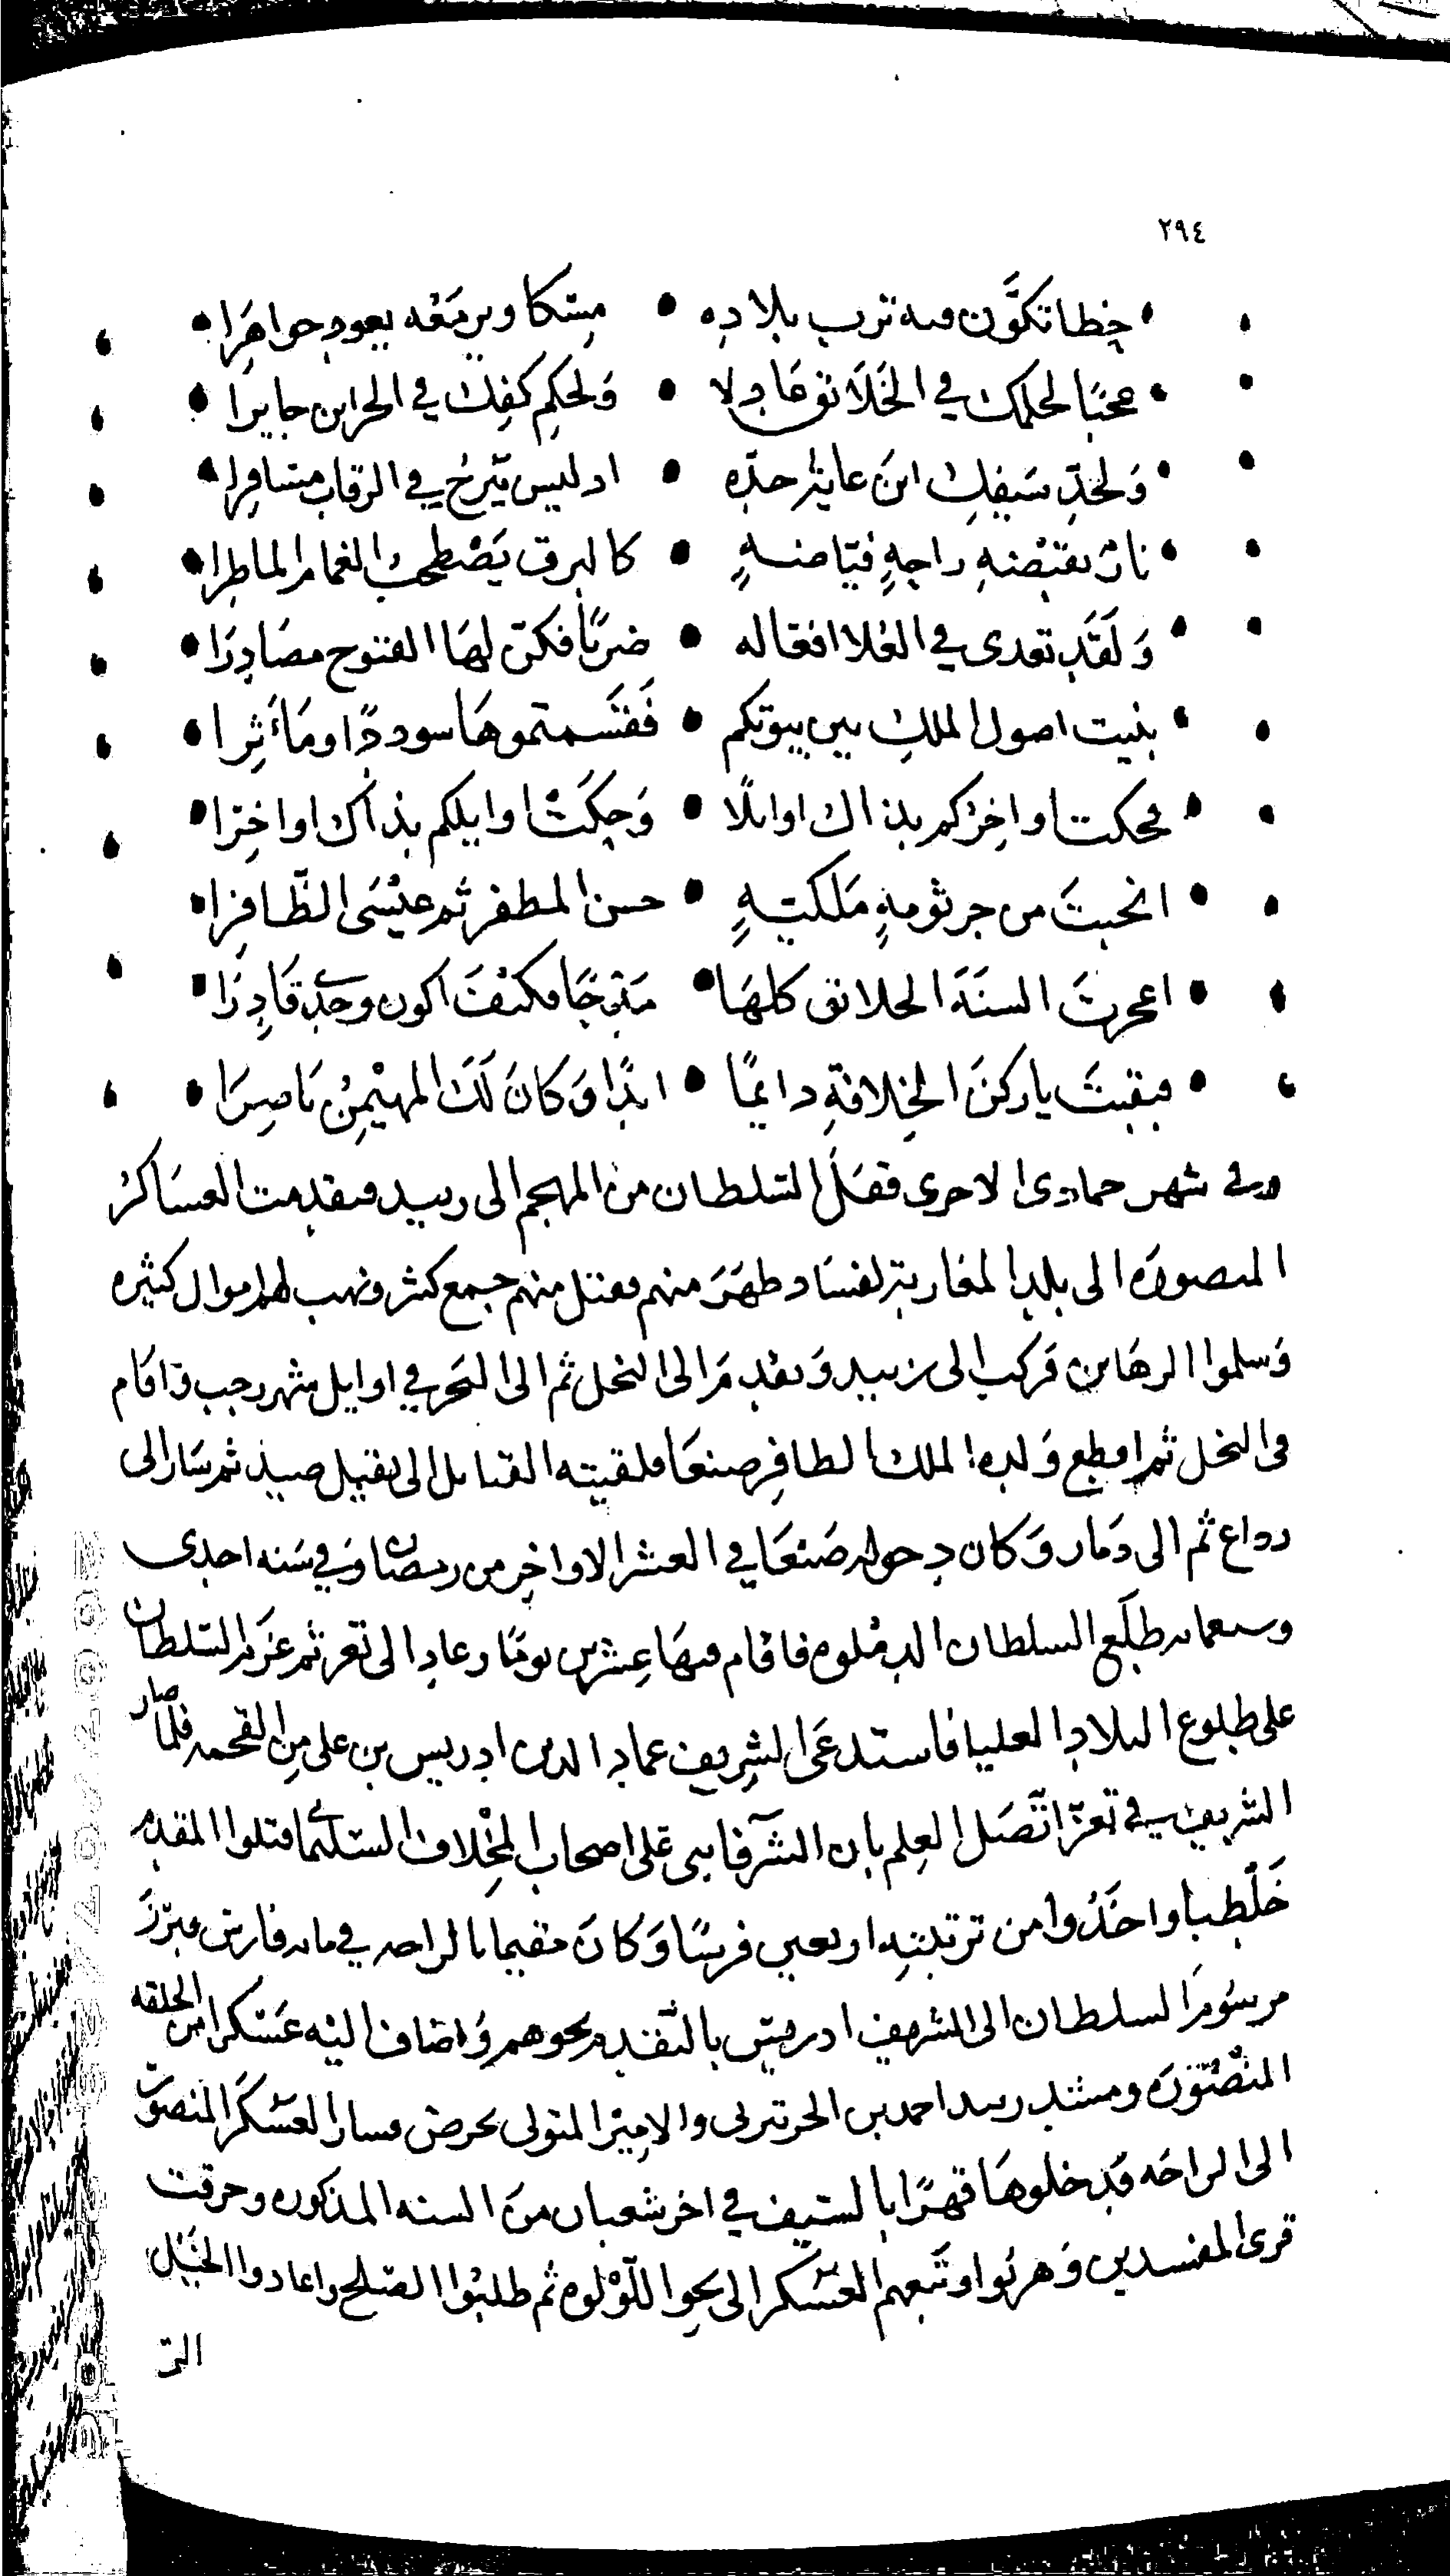 ٢٩٤
خطا تكوَّن منه ترب بلاده • مسكا ويرمَعُه يعود جواهرا
عجبًا لحلمك في الخلائق عادلا • ولحكم كفك في الخزاين جايرا
ولحدّ سيفك اين عاير حدّه • اد ليس يبرح في الرقاب مسافرا
نار بقبضه راحةٍ فيّاضةٍ • كالبرق يصطحب الغمام الماطرا
ولقد تعدى في العُلا افعاله • ضربًا فكنّ لها الفتوح مصادرا
بنيت اصول الملك بين بيوتكم • فقسمتموها سوددًا ومآثرا
فحكت اواخركم بذاك اوايلًا • وحكت اوايلكم بذاك اواخرا
انجبتَ من جرثومةٍ ملكيّةٍ • حسن المظفر ثم عيسى الظّافرا
اعجزت السنة الخلائق كلها • مدحًا فكيف اكون وحدي قادرا
فبقيت يا ركن الخلافة دايمًا • ابدًا وكان لك المهيمن ناصرا
وفي شهر جمادى الاخرى قفل السلطان من المهجم الى زبيد فتقدمت العساكر
المنصورة الى بلد المغاربة لفساد ظهر منهم فقتل منهم جمع كثير ونهب لهم اموال كثيره
وسلموا الرهاين فركب الى زبيد وتقدم الى النخل ثم الى البحر في اوايل شهر رجب واقام
في النخل ثم اقطع ولده الملك الظافر صنعا فلقيته القبايل الى نقيل صيد ثم سار الى
رداع ثم الى ذمار وكان دخوله صنعا في العشر الاواخر من رمضان وفي سنه احدى
وسبعمايه طلع السلطان الدملوه فاقام فيها عشرين يومًا وعاد الى تعز ثم عزم السلطان
على طلوع البلاد العليا فاستدعى الشريف عماد الدين ادريس بن على من القحمه فلما صار
الشريف في تعز اتّصل العلم بان الشرفا بنى على اصحاب المخلاف السليمانى قتلوا المقدم
خطلبا واخذوا من ترتيبه اربعين فرسًا وكان مقيما بالراحه في مايه فارس فبرز
مرسوم السلطان الى الشريف ادريس بالتقدم نحوهم واضاف اليه عسكرا من الحلقه
المنصوره ومشد زبيد احمد بن الخرتبرلى والامير المتولى بحرض فسار العسكر المنصور
الى الراحه فدخلوها قهرًا بالسيف في اخر شعبان من السنه المذكوره وحرقت
قرى المفسدين وهربوا وتبعهم العسكر الى نحو اللؤلؤه ثم طلبوا الصلح واعادوا الخيل
التى